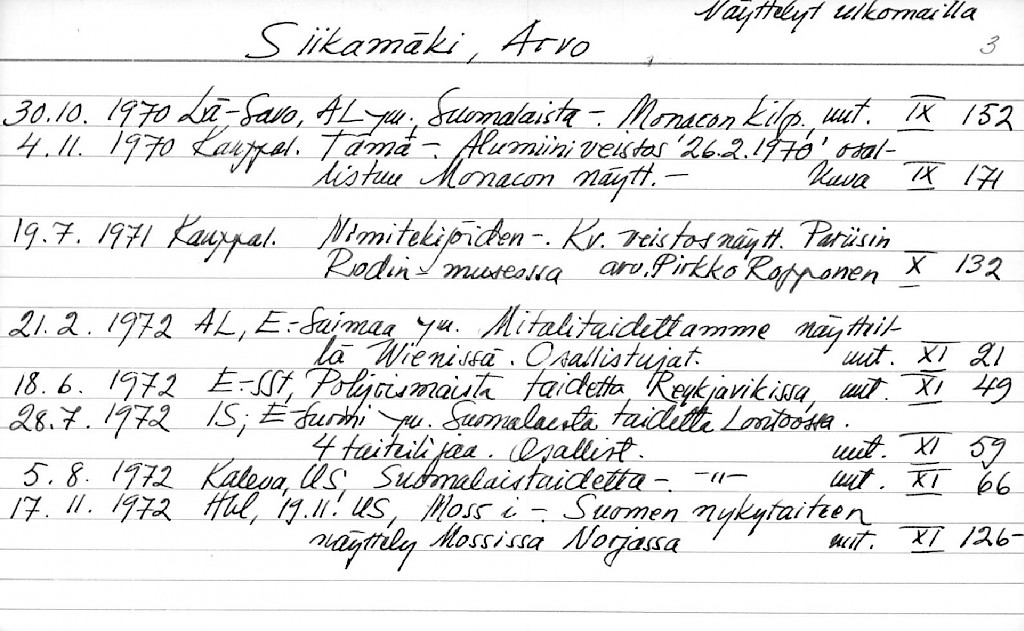 Näyttelyt ulkomailla
3
Siikamäki, Arvo
30.10. 1970 Lä-Savo, AL ym. Suomalaista -. Monacon kilp. uut. IX 152
4.11. 1970 Kauppal. Tämä -. Alumiiniveistos '26.2.1970' osal-
listuu Monacon näytt. - Kuva IX 171
19.7. 1971 Kauppal. Nimitekijöiden -. Kv. veistosnäytt. Pariisin
Rodin-museossa arv. Pirkko Ropponen X 132
21.2. 1972 AL, E.-Saimaa ym. Mitalitaidettamme näytteil-
lä Wienissä. Osallistujat. uut. XI 21
18.6. 1972 E-SSt, Pohjoismaista taidetta Reykjavikissa, uut. XI 49
28.7. 1972 IS; E-Suomi ym. Suomalaista taidetta Lontoossa.
4 taiteilijaa. Osallist. uut. XI 59
5.8. 1972 Kaleva, US, Suomalaistaidetta -. -"- uut. XI 66
17.11. 1972 Hbl, 19.11. US, Moss i -. Suomen nykytaiteen
näyttely Mossissa Norjassa uut. XI 126-